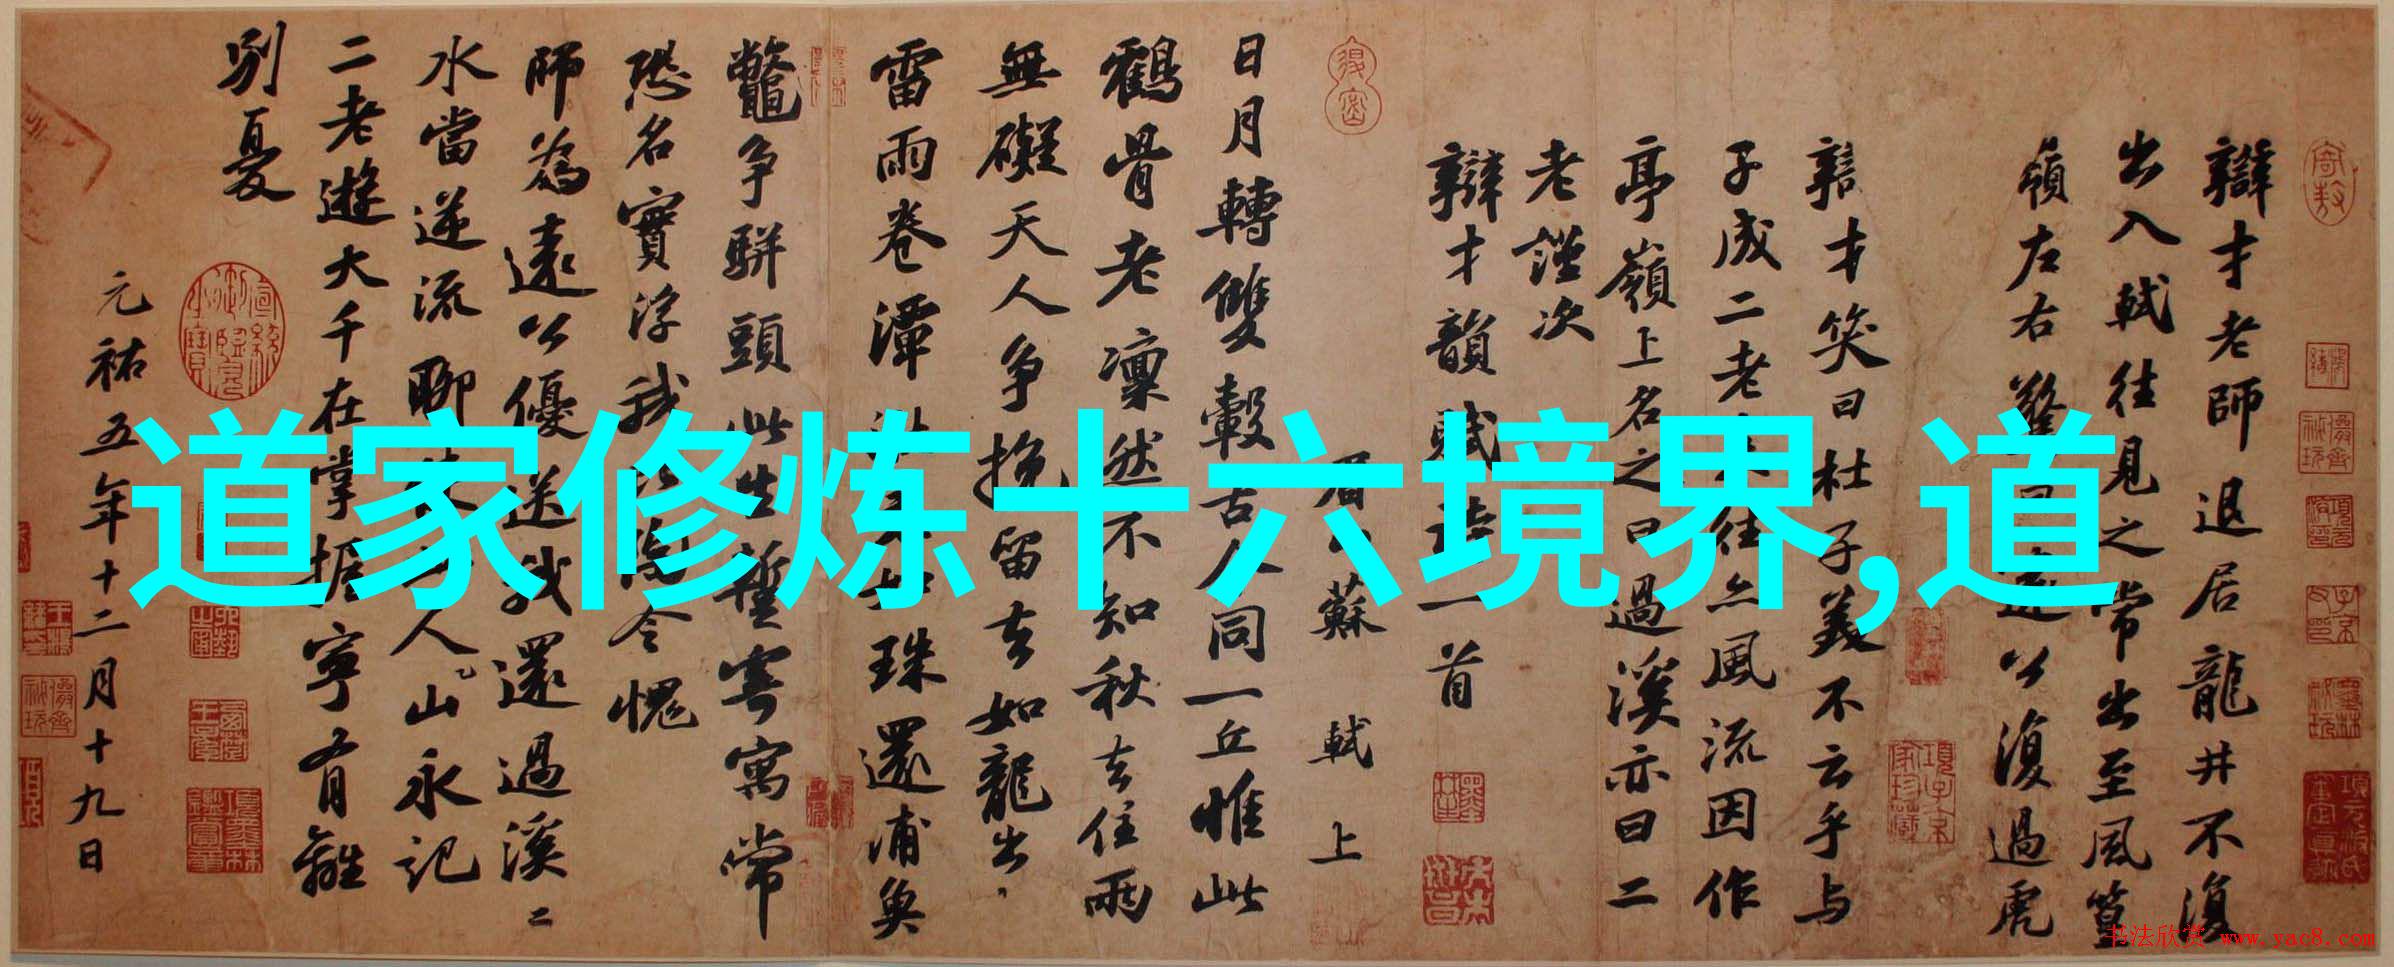 辯才老師退居龍井不復
出入軾往見之常出至風篁
嶺左右驚曰遠公復過虎
辯才笑曰杜子美不云乎与
子成二老来往亦風流因作
亭嶺上名之曰過溪亦曰二
老謹次
辯才韻賦詩一首
眉山蘇軾上
日月轉雙轂古人同一丘惟此
鶴骨老凜然不知秋去住兩
無礙天人争挽留去如龍出
雷雨卷潭湫来如珠還浦魚
鼈争駢頭此生暫寄寓常
恐名實浮我比陶令愧
師為遠公優送我還過溪二
水當逆流聊使此人山永記
二老遊大千在掌握寧有離
别憂
元祐五年十二月十九日
道家修炼十六境界,道
书法欣赏 www.yac8.com